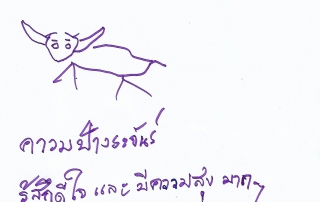 ความบ้างระจันร์
รู้สึกดีใจ และ มีความสุข มากๆ